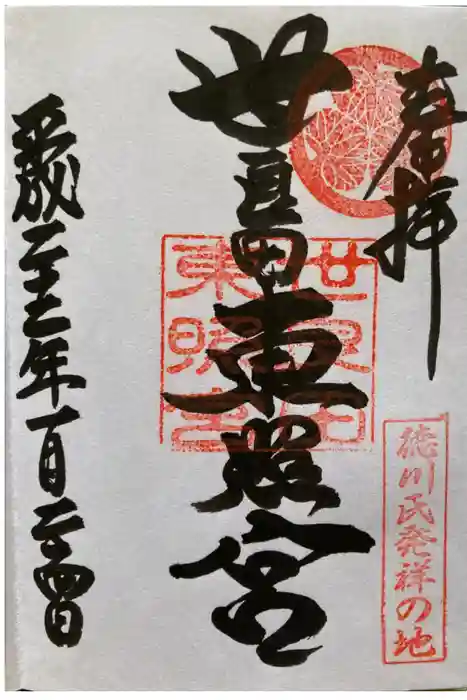 奉拝
世良田東照宮
世良田
東照宮
徳川氏発祥の地
平成二十三年一月二十四日